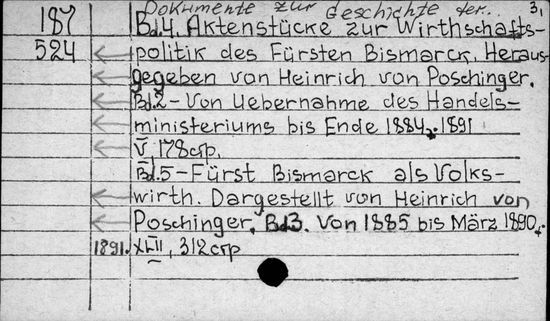 Dokumente zur Geschichte der.. 3,
187 Bd.4. Aktenstücke zur Wirthschafts-
524 politik des Fürsten Bismarck. Heraus-
gegeben von Heinrich von Poschinger.
Bd.2-Von Uebernahme des Handels-
ministeriums bis Ende 1884. 1891
V, 178стр.
Bd.5-Fürst Bismarck als Volks-
wirth. Dargestellt von Heinrich von
Poschinger. Bd3. Von 1885 bis März 1890.
1891. XLII, 312стр